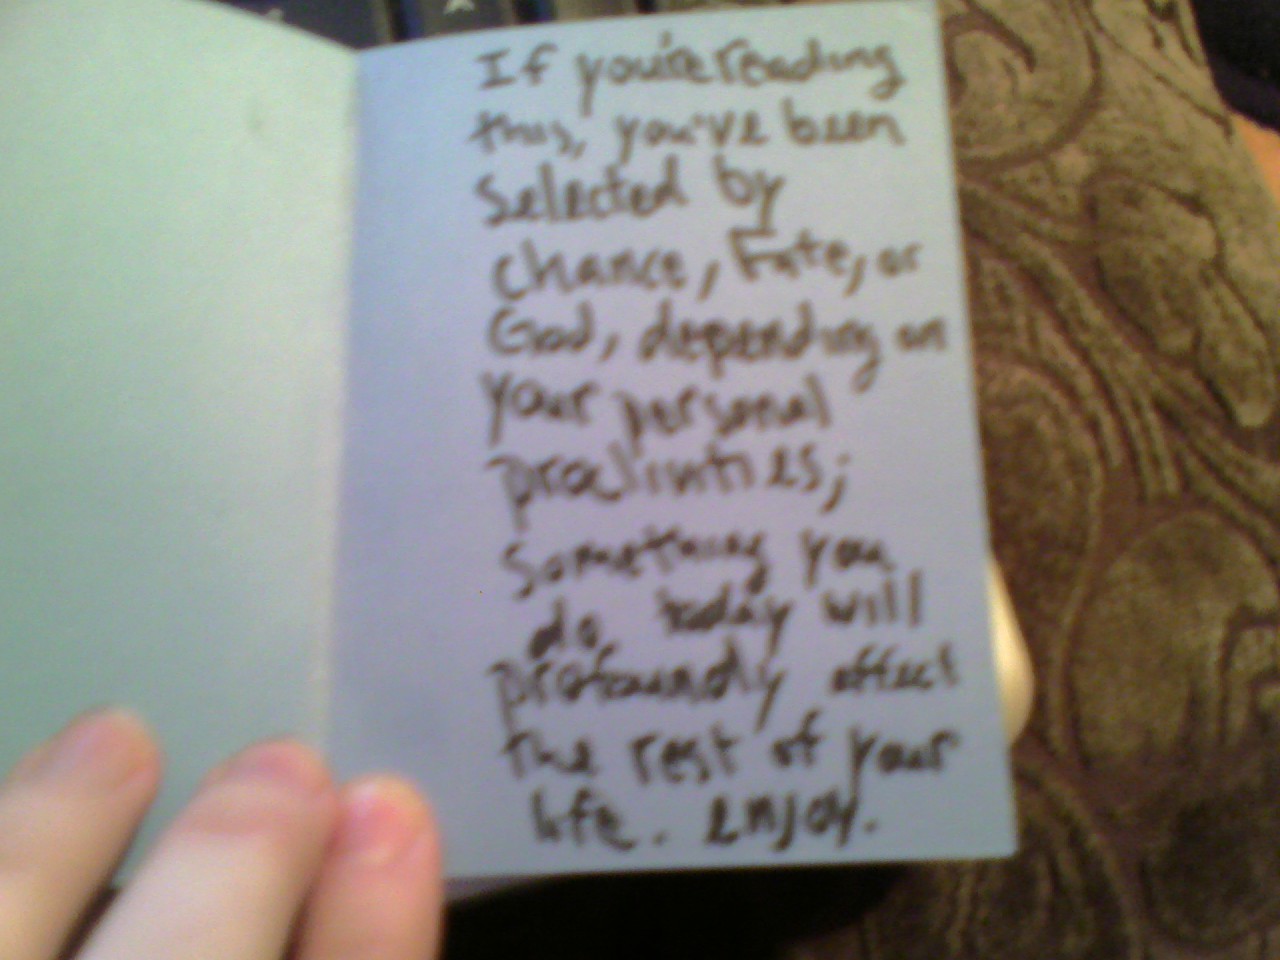 If you're reading
this, you've been
selected by
chance, Fate, or
God, depending on
your personal
proclivities;
Something you
do today will
profoundly effect
the rest of your
life. Enjoy.